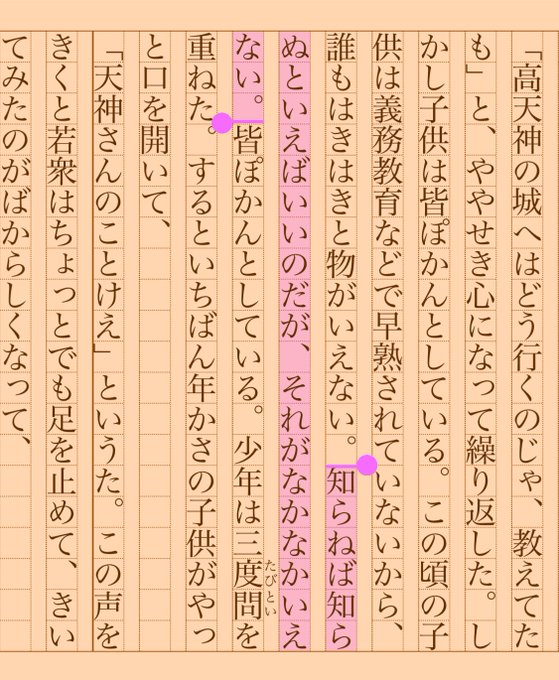 「高天神の城へはどう行くのじゃ、教えてた
も」と、ややせき心になって繰り返した。し
かし子供は皆ぽかんとしている。この頃の子
供は義務教育などで早熟されていないから、
誰もはきはきと物がいえない。知らねば知ら
ぬといえばいいのだが、それがなかなかいえ
ない。皆ぽかんとしている。少年は三度問たびといを
重ねた。するといちばん年かさの子供がやっ
と口を開いて、
「天神さんのことけえ」というた。この声を
きくと若衆はちょっとでも足を止めて、きい
てみたのがばからしくなって、